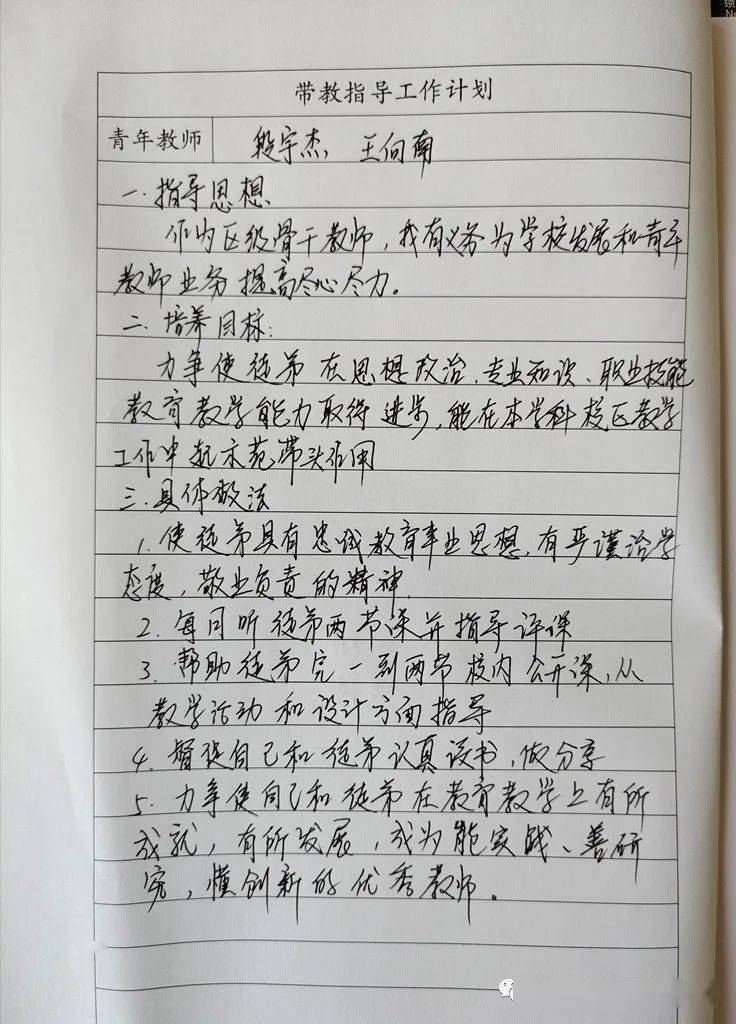 带教指导工作计划
青年教师 段宇杰, 王向南
一.指导思想
作为区级骨干教师,我有义务为学校发展和青年
教师业务提高尽心尽力。
二.培养目标:
力争使徒弟在思想政治、专业知识、职业技能
教育教学能力取得进步,能在本学科校区教学
工作中起示范带头作用
三.具体做法
1.使徒弟具有忠诚教育事业思想,有严谨治学
态度,敬业负责的精神.
2.每月听徒弟两节课并指导评课
3.帮助徒弟完一到两节校内公开课,从
教学活动和设计方面指导
4.督促自己和徒弟认真读书,做分享
5.力争使自己和徒弟在教育教学上有所
成就,有所发展,成为能实战、善研
究,懂创新的优秀教师。